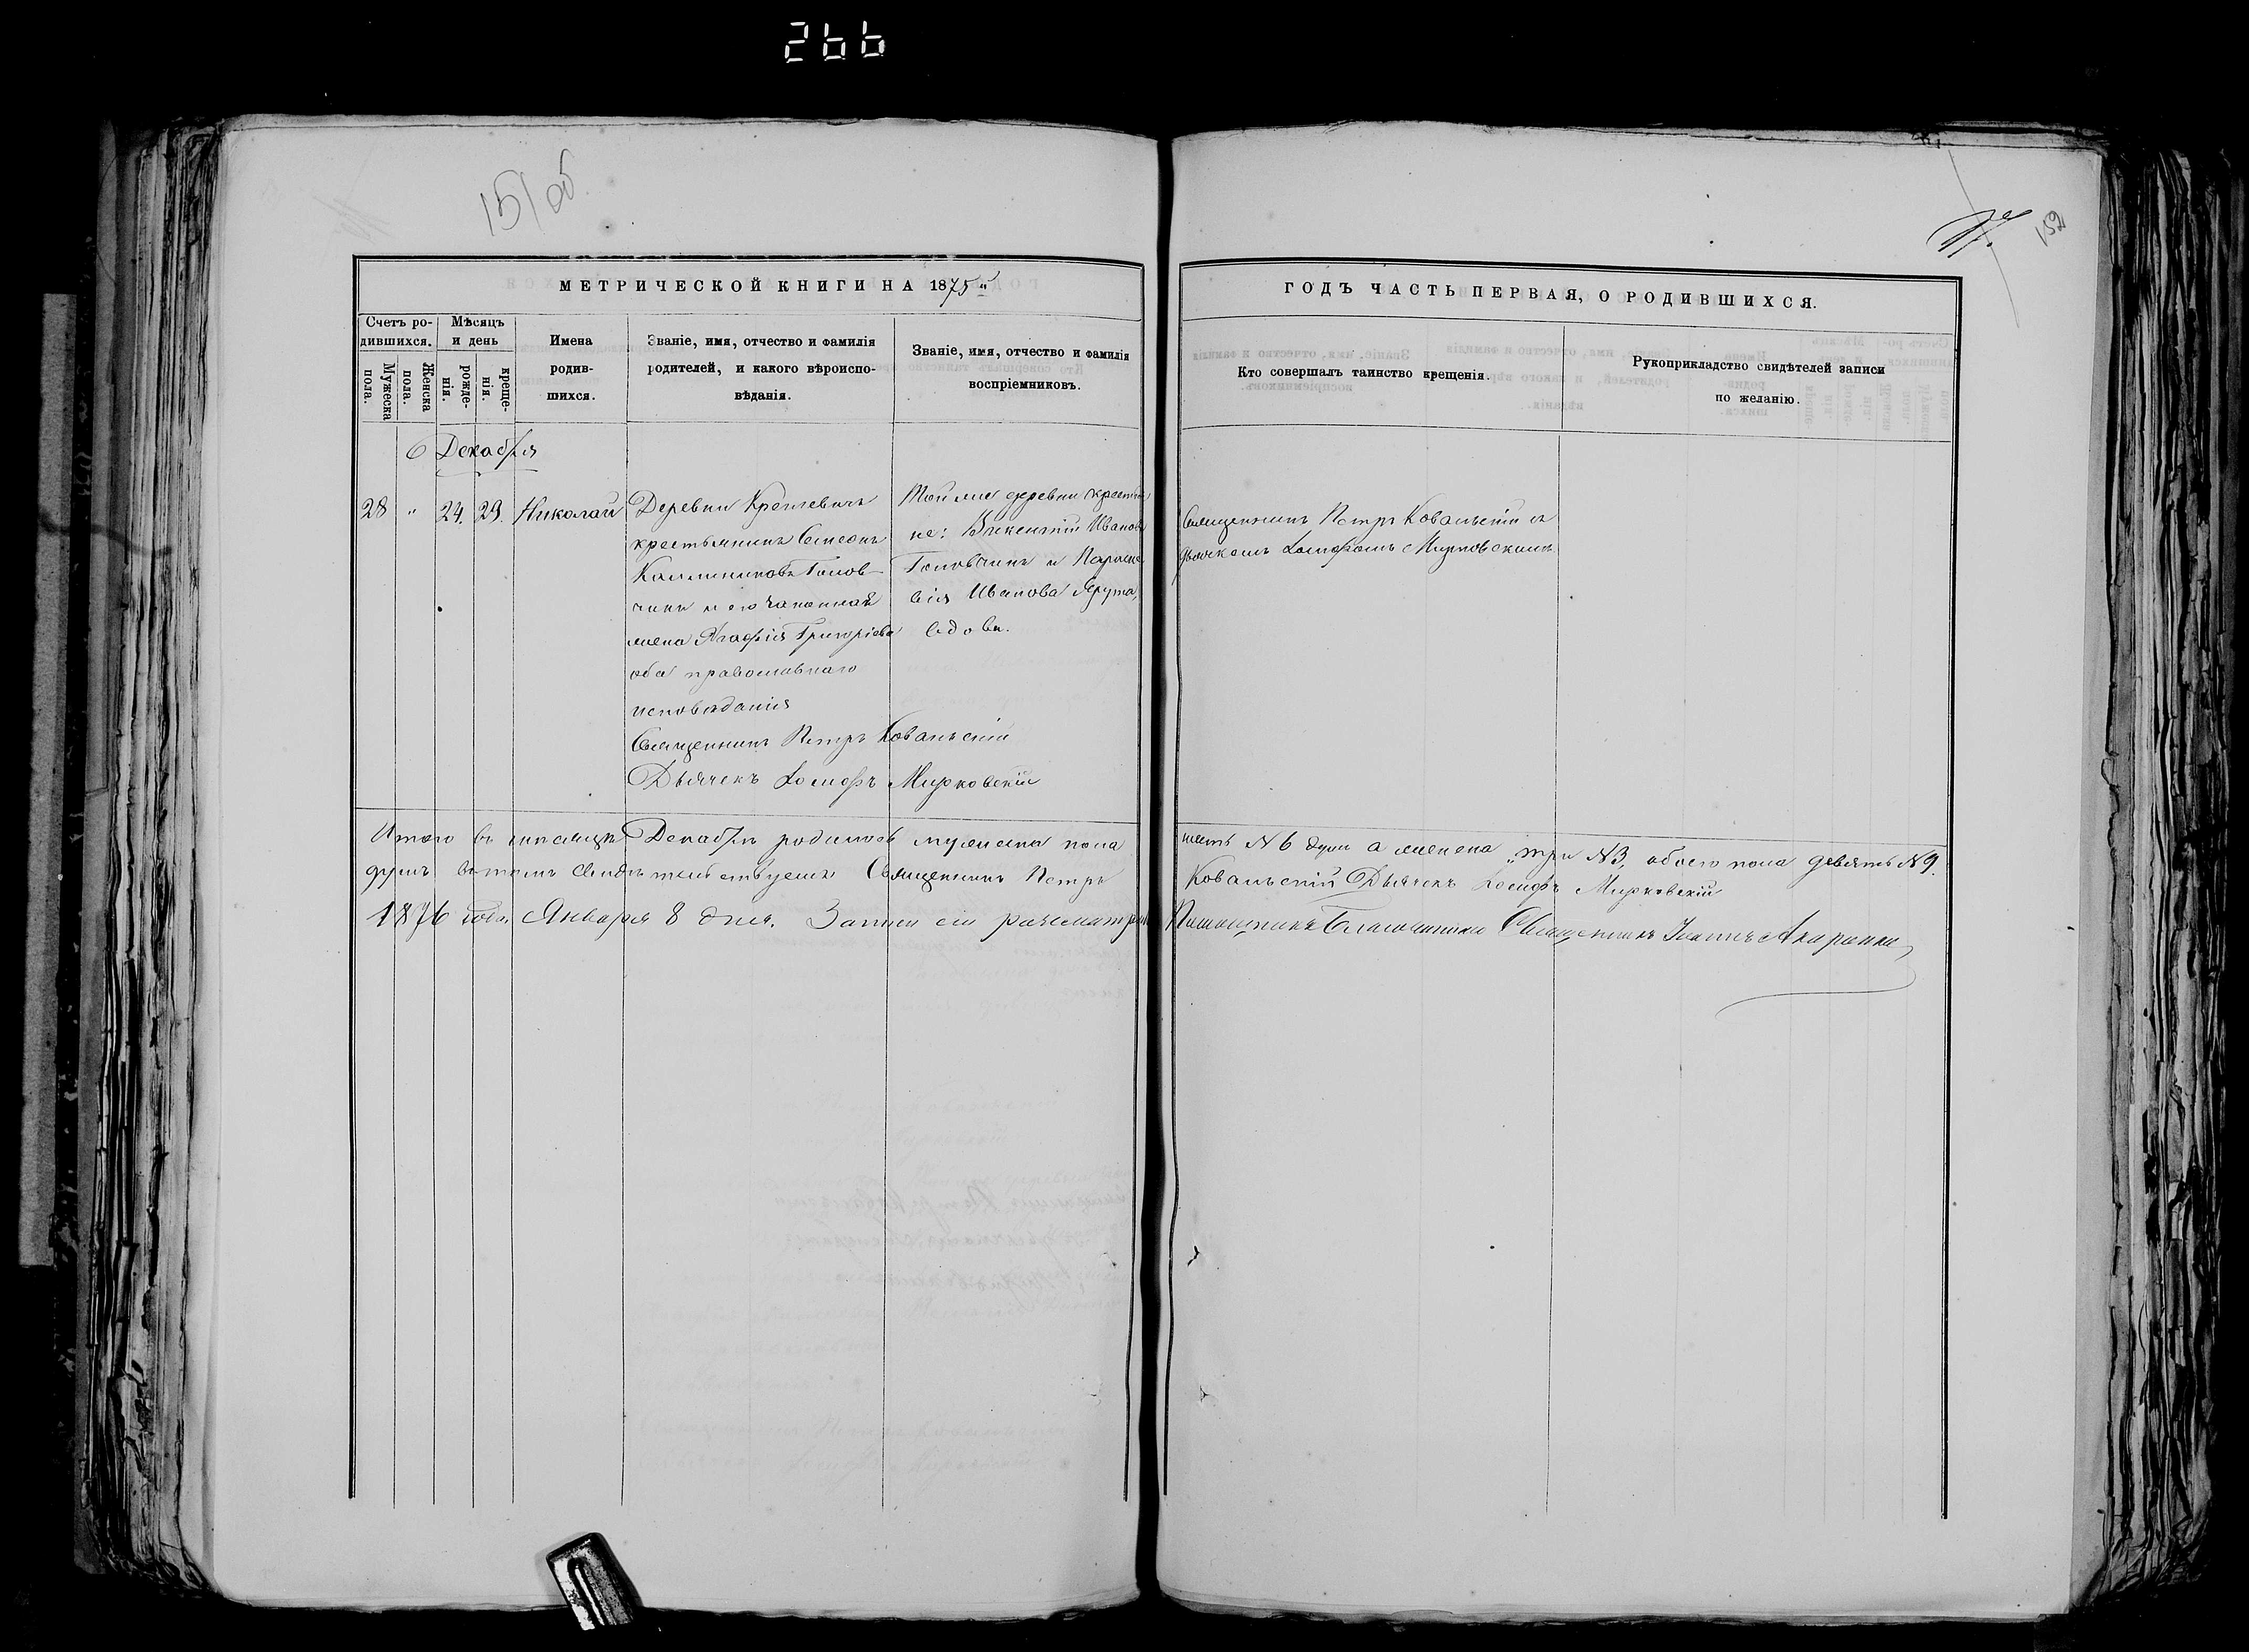 266
151 об
152
МЕТРИЧЕСКОЙ КНИГИ НА 1875й
ГОДЪ ЧАСТЬ ПЕРВАЯ, О РОДИВШИХСЯ.
Счетъ ро-
дившихся.
Мужеска
пола.
Женска
пола.
Мѣсяцъ
и день
рожде-
нія.
креще-
нія.
Имена
родив-
шихся.
Званіе, имя, отчество и фамилія
родителей, и какого вѣроиспо-
вѣданія.
Званіе, имя, отчество и фамилія
воспріемниковъ.
Кто совершалъ таинство крещенія.
Рукоприкладство свидѣтелей записи
по желанію.
Декабря
28 " 24. 29. Николай
Деревни
крестьянинъ Симеонъ
Каллиниковъ Голов-
чикъ и его законная
жена Агафія Григоріева
оба православнаго
исповѣданія
Священникъ Петръ Ковальскій
Дьячекъ Іосифъ Мирковскій
Той же деревни крестья
не: Викентій Иванов
Головчикъ и Параске
вія Иванова Ярута,
вдова.
Священникъ Петръ Ковальскій съ
дьячкомъ Іосифомъ Мирковскимъ
Итого въ мѣсяцѣ Декабрѣ родилось мужеска пола
шесть N 6 душ а женска три N3, обоего пола девять N9.
душъ въ томъ свидѣтельствуемъ Священникъ Петръ
Ковальскій Дьячекъ Іосифъ Мирковскій
1876 года Января 8 дня. Записи сіи разсматрив
Помощникъ Благочиннаго Священникъ Іоаннъ